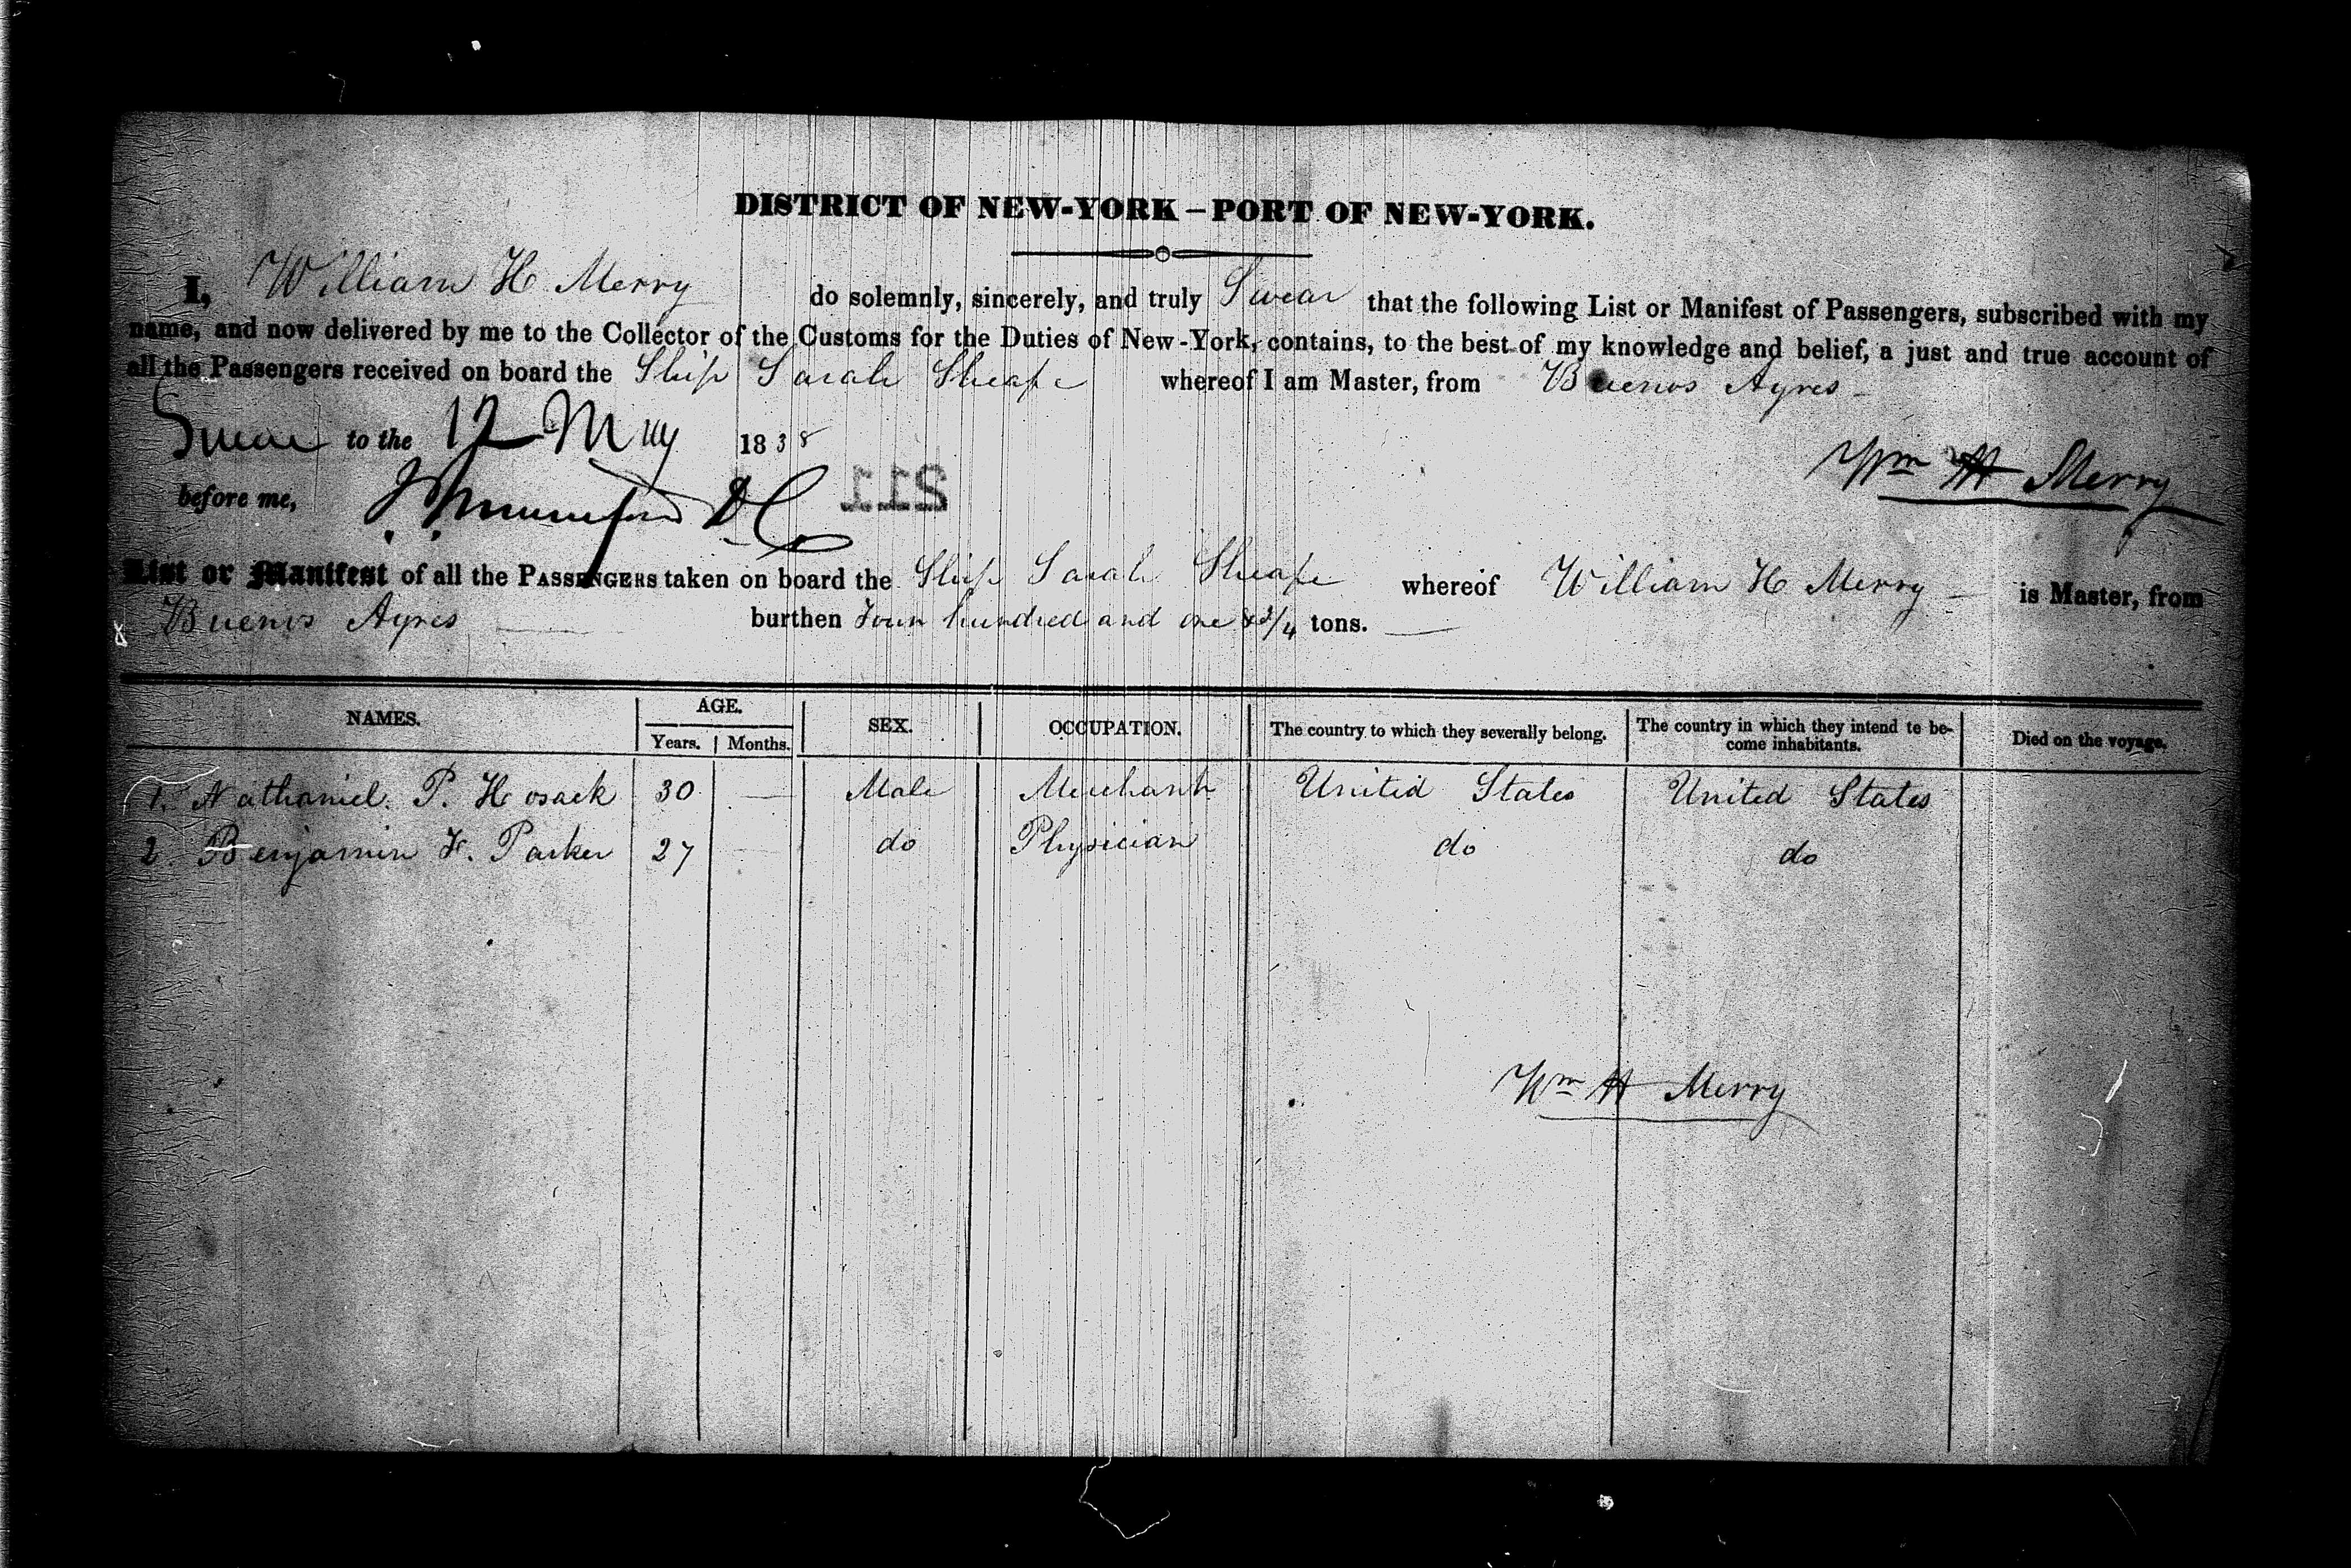 DISTRICT OF NEW-YORK – PORT OF NEW-YORK.
I, William H Merry do solemnly, sincerely, and truly Swear that the following List or Manifest of Passengers, subscribed with my
name, and now delivered by me to the Collector of the Customs for the Duties of New-York, contains, to the best of my knowledge and belief, a just and true account of
all the Passengers received on board the Ship Sarah Sheafe whereof I am Master, from Buenos Ayres
to the 12 May 1838
Wm H Merry
before me, DC
211
List or Manifest of all the PASSENGERS taken on board the Ship Sarah Sheafe whereof William H Merry is Master, from
Buenos Ayres burthen Four hundred and one & 3/4 tons.
NAMES. AGE. SEX. OCCUPATION. The country to which they severally belong. The country in which they intend to be-
come inhabitants. Died on the voyage.
Years. Months.
1. Nathaniel P. Hosack 30 Male Merchant United States United States
2 Benjamin F. Parker 27 do Physician do do
Wm H Merry